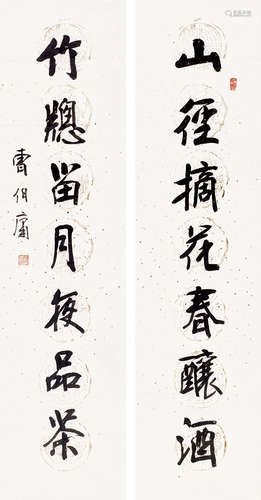 山徑摘花春釀酒
竹牕留月夜品茶
曹伯庸